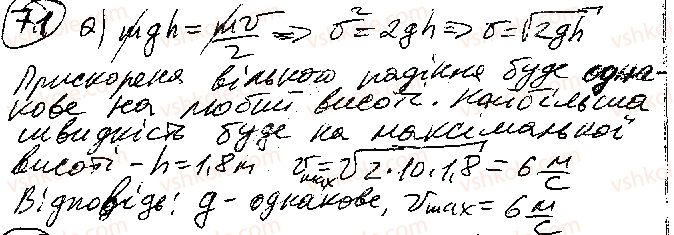 7.1 а) mgh = mv/2 => v² = 2gh => v = √2gh
Прискорення вільного падіння буде одна-
кове на любий висоті. Найбільша
швидкість буде на максімальної
висоті – h = 1,8м v max = √2·10·1,8 = 6 м/с
Відповідь: g – однакове, vmax = 6 м/с